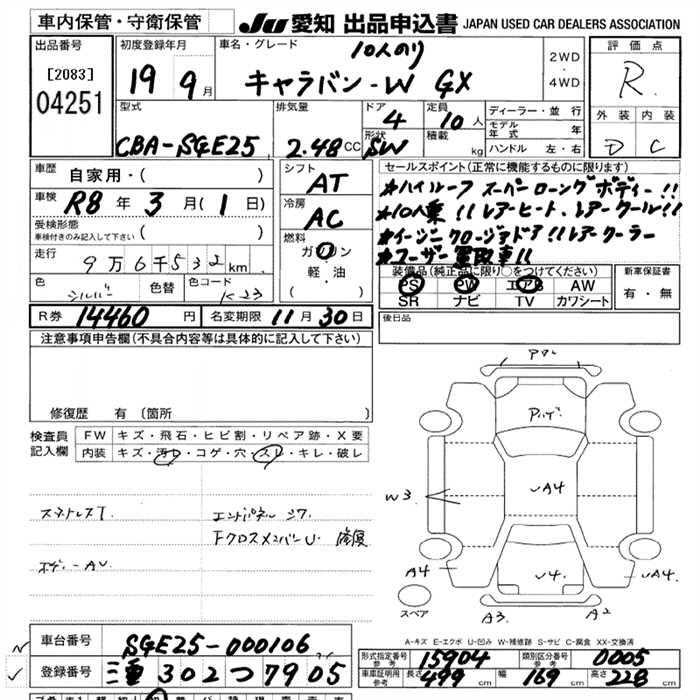 車内保管・守衛保管 JU 愛知 出品申込書 JAPAN USED CAR DEALERS ASSOCIATION
出品番号 初度登録年月 車名・グレード 10人のり 評価点
[2083] 19 9月 キャラバン-W GX 2WD・4WD R
04251 外装 内装
型式 排気量 ドア 定員 ディーラー・並行
CBA-SGE25 2.48CC 4 10人 モデル年式 年 D C
形状 SW 積載 kg ハンドル 左・右
車歴 自家用・( ) シフト AT セールスポイント(正常に機能するものに限ります)
車検 R8年3月(1日) 冷房 AC ★ハイルーフ スーパーロングボディー!!
受検形態 ( ) ★10人乗!!レアーヒート、レアークール!!
車検付きのみ記入して下さい 燃料 ガソリン ★イージークロージァドア!!レアークーラー
走行 9万6千532km 軽・油 ★ユーザー買取車!!
色 シルバー 色替 色コード K23 ( ) 装備品(純正品に限り○をつけてください) 新車保証書
PS PW エアB AW 有・無
SR ナビ TV カワシート
R券 14460円 名変期限 11月30日 後日品
注意事項申告欄(不具合内容等は具体的に記入して下さい)
修復歴 有(箇所
検査員記入欄 FW キズ・飛石・ヒビ割・リペア跡・X要
内装 キズ・汚れ・コゲ・穴・スレ・キレ・破レ
スタットレスT エンドパネル シワ
FクロスメンバーU
ボディーAU
W3
UA4
A4
U4
UA4
スペア
A3
A2
A-キズ E-エクボ U-凹み W-補修跡 S-サビ C-腐食 XX-交換済
車台番号 SGE25-000106
登録番号 三重 302 つ 7905
形式指定番号 参考 15904 類別区分番号 参考 0005
車庫証明用 参考 長さ 499cm 幅 169cm 高さ 228cm